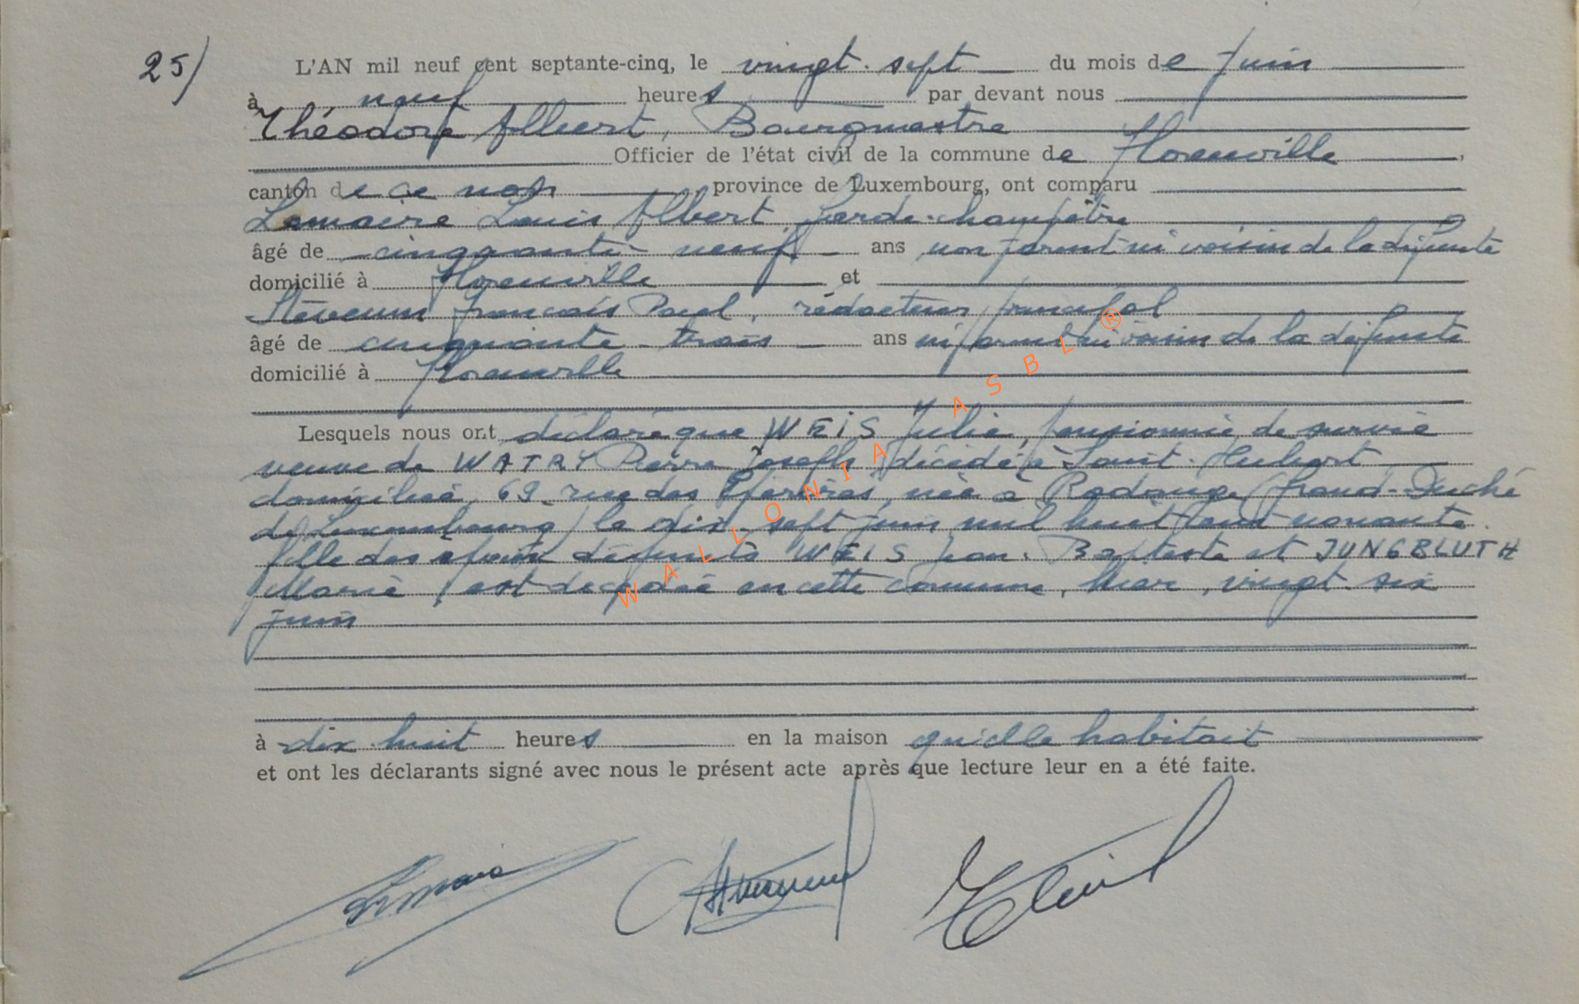 25/
L'AN mil neuf cent septante-cinq, le vingt-sept du mois de Juin
à neuf heures par devant nous
Théodore Albert, Bourgmestre
Officier de l'état civil de la commune de Florenville,
canton de ce nom province de Luxembourg, ont comparu
Lemaire Louis Albert, garde-champêtre
âgé de cinquante-neuf ans non parent ni voisin de la défunte
domicilié à Florenville et
François Paul, rédacteur principal
âgé de cinquante-trois ans ni parent ni voisin de la défunte
domicilié à Florenville
Lesquels nous ont déclaré que WEIS Julie, pensionnée de survie
veuve de WATRY Pierre Joseph, décédé à Saint-Hubert
domiciliée, 69 rue des, née à Rodange (Grand-Duché
de Luxembourg) le dix-sept juin mil huit cent nonante
fille des époux défunts WEIS Jean-Baptiste et JUNGBLUTH
Marie, est décédée en cette commune, hier, vingt-six
juin
à dix-huit heures en la maison qu'elle habitait
et ont les déclarants signé avec nous le présent acte après que lecture leur en a été faite.
WALLONIA ASBL ®